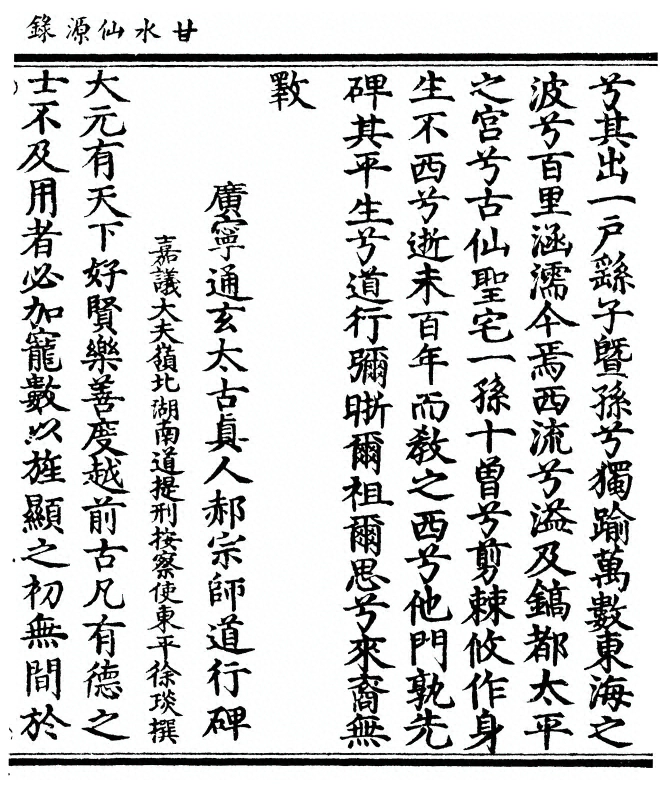 甘水仙源錄
兮其出一戶繇子曁孫兮獨踰萬數東海之
波兮百里涵濡今焉西流兮溢及鎬都太平
之宮兮古仙聖宅一孫十曾兮剪棘攸作身
生不西兮逝未百年而教之西兮他門孰先
碑其平生兮道行彌晣爾祖爾思兮來裔無
斁
廣寧通玄太古眞人郝宗師道行碑
嘉議大夫嶺北湖南道提刑按察使東平徐琰撰
大元有天下好賢樂善度越前古凡有德之
士不及用者必加寵數以旌顯之初無間於